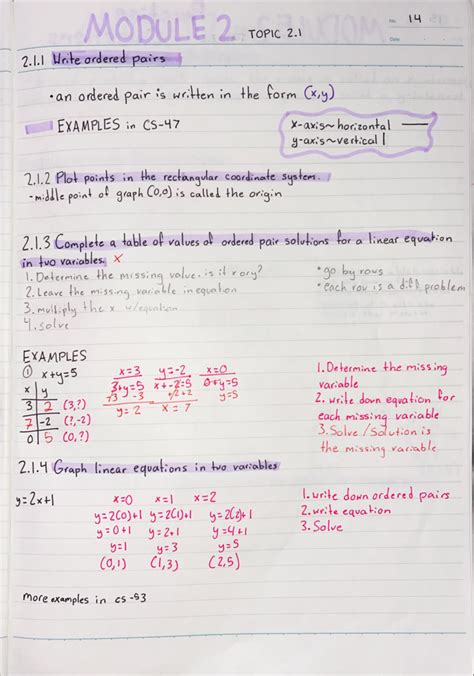 No. 14
MODULE 2 TOPIC 2.1
Date
2.1.1 Write ordered pairs
• an ordered pair is written in the form (x,y)
EXAMPLES in CS-47
x-axis~horizontal —
y-axis~vertical |
2.1.2 Plot points in the rectangular coordinate system.
-middle point of graph (0,0) is called the origin
2.1.3 Complete a table of values of ordered pair solutions for a linear equation
in two variables. x
1. Determine the missing value. is it x or y?
2. Leave the missing variable in equation
3. multiply the x w/equation
4. solve
• go by rows
• each row is a diff problem
EXAMPLES
① x+y=5
x | y
3 | 2 (3,?)
7 | -2 (?,-2)
0 | 5 (0,?)
x=3 y=-2 x=0
3+y=5 x+-2=5 0+y=5
-3 -3 +2 +2 y=5
y=2 x=7
1. Determine the missing
variable
2. write down equation for
each missing variable
3. Solve/Solution is
the missing variable
2.1.4 Graph linear equations in two variables
y=2x+1 x=0 x=1 x=2
y=2(0)+1 y=2(1)+1 y=2(2)+1
y=0+1 y=2+1 y=4+1
y=1 y=3 y=5
(0,1) (1,3) (2,5)
1. write down ordered pairs
2. write equation
3. Solve
more examples in CS-53